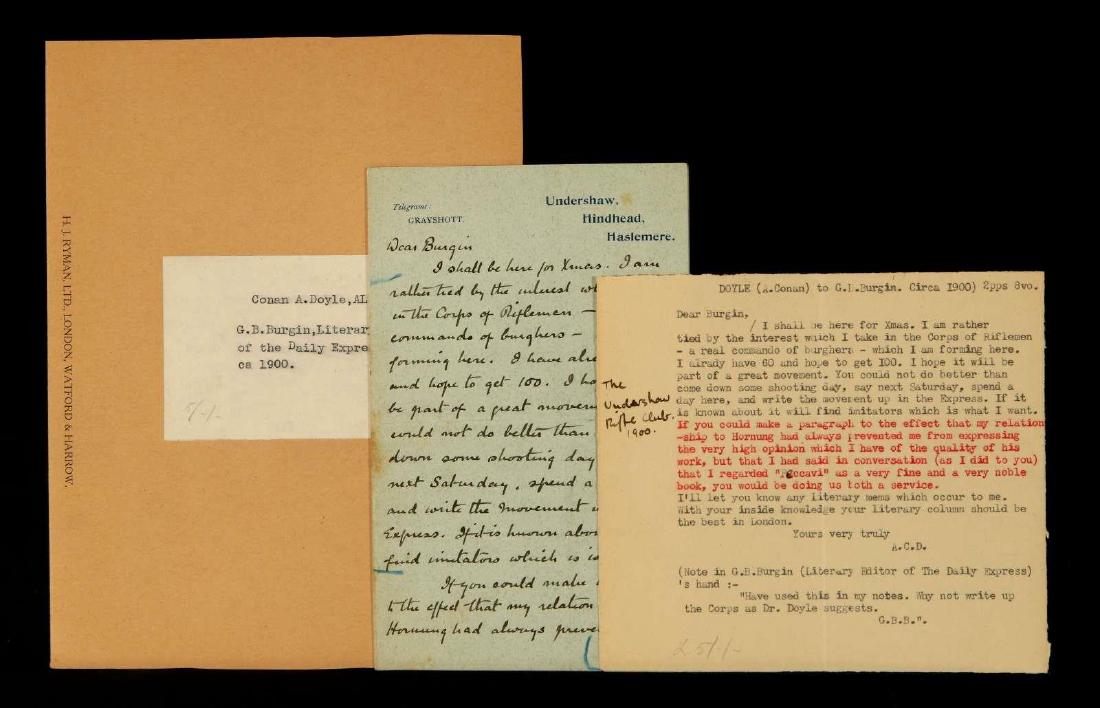 H. J. RYMAN, LTD., LONDON, WATFORD & HARROW.
Conan A.Doyle,AL
G.B.Burgin,Literar
of the Daily Expre
ca 1900.
5/-/-
Telegrams:
GRAYSHOTT.
Undershaw,
Hindhead,
Haslemere.
Dear Burgin
I shall be here for Xmas. I am
rather tied by the interest wh
in the Corps of Riflemen —
commando of burghers —
forming here. I have alre
and hope to get 100. I ho
be part of a great movem
could not do better than
down some shooting day
next Saturday, spend a
and write the movement u
Express. If it is known abou
find imitators which is
If you could make
to the effect that my relation
Hornung had always preve
DOYLE (A.Conan) to G.B.Burgin. Circa 1900) 2pps 8vo.
Dear Burgin,
/ I shall be here for Xmas. I am rather
tied by the interest which I take in the Corps of Riflemen
- a real commando of burghers - which I am forming here.
I alrady have 60 and hope to get 100. I hope it will be
part of a great movement. You could not do better than
come down some shooting day, say next Saturday, spend a
day here, and write the movement up in the Express. If it
is known about it will find imitators which is what I want.
If you could make a paragraph to the effect that my relation
-ship to Hornung had always prevented me from expressing
the very high opinion which I have of the quality of his
work, but that I had said in conversation (as I did to you)
that I regarded "Peccavi" as a very fine and a very noble
book, you would be doing us both a service.
I'll let you know any literary mems which occur to me.
With your inside knowledge your literary column should be
the best in London.
Yours very truly
A.C.D.
(Note in G.B.Burgin (Literary Editor of The Daily Express)
's hand :-
"Have used this in my notes. Why not write up
the Corps as Dr. Doyle suggests.
G.B.B.".
The
Undershaw
Rifle Club.
1900.
£5/-/-